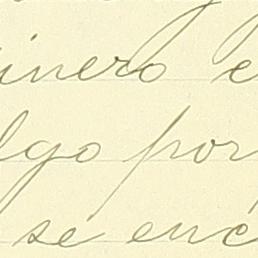 inero e
lgo por
se enc